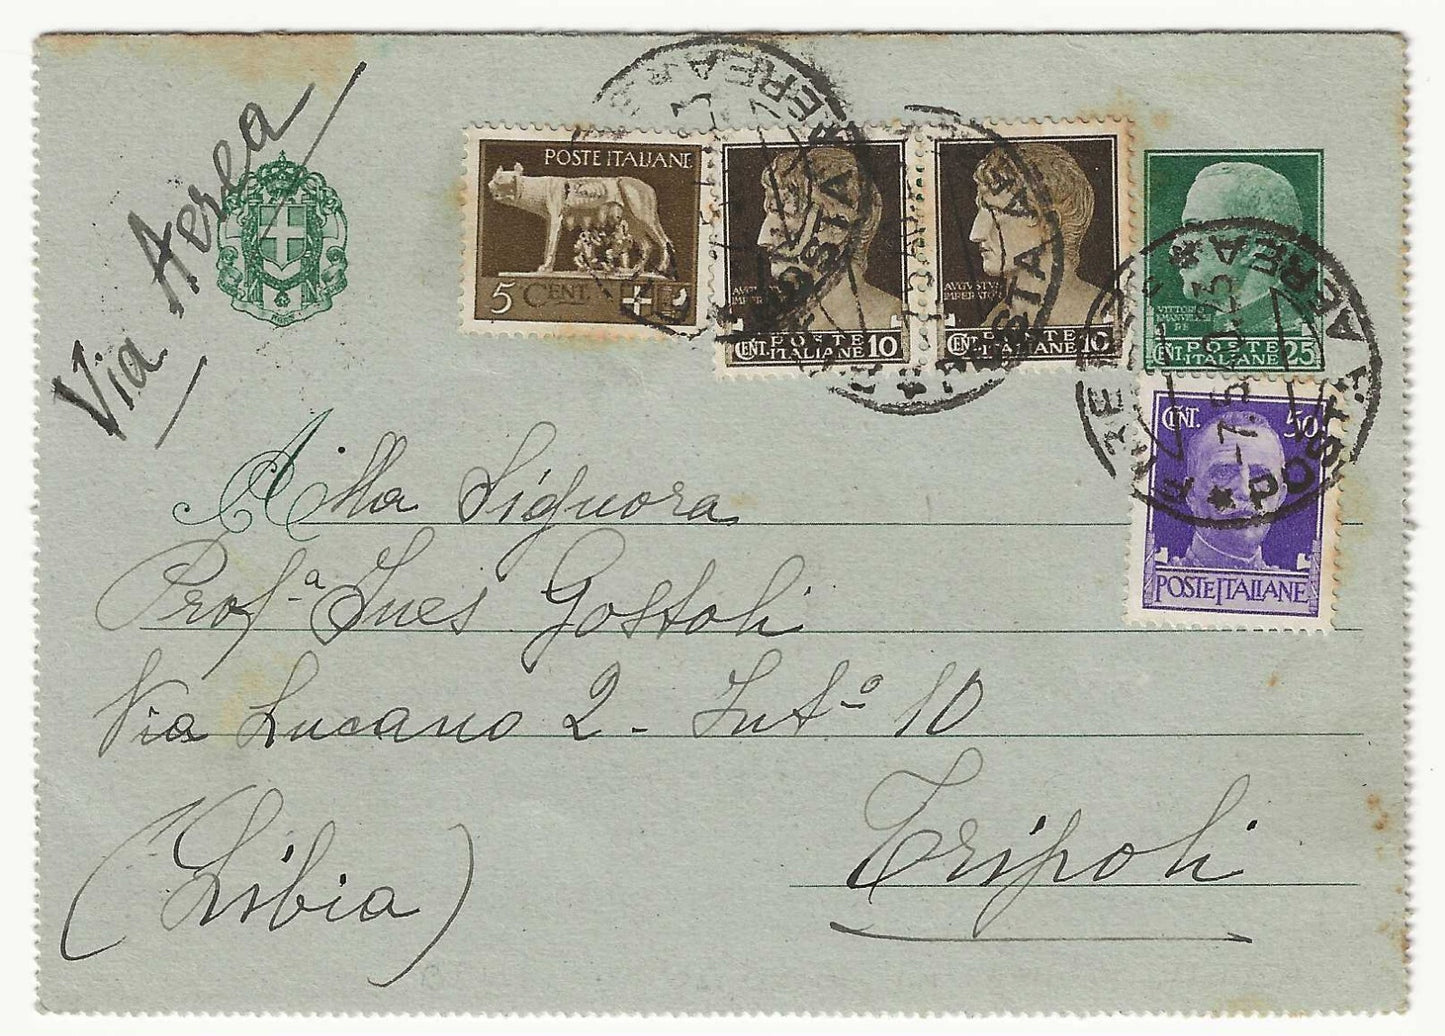 Via Aerea
POSTE ITALIANE
5 CENT.
AUGUSTVS
IMPERATOR
CENT. POSTE
ITALIANE 10
AUGUSTVS
IMPERATOR
CENT. POSTE
ITALIANE 10
VITTORIO
EMANUELE III
RE
CENT. POSTE
ITALIANE 25
CENT. 50
POSTE ITALIANE
POSTA AEREA
POSTA AEREA
POSTA AEREA
FIRENZE
Alla Signora
Prof.a Ines Gostoli
Via Lucano 2 - Int.o 10
Tripoli
(Libia)